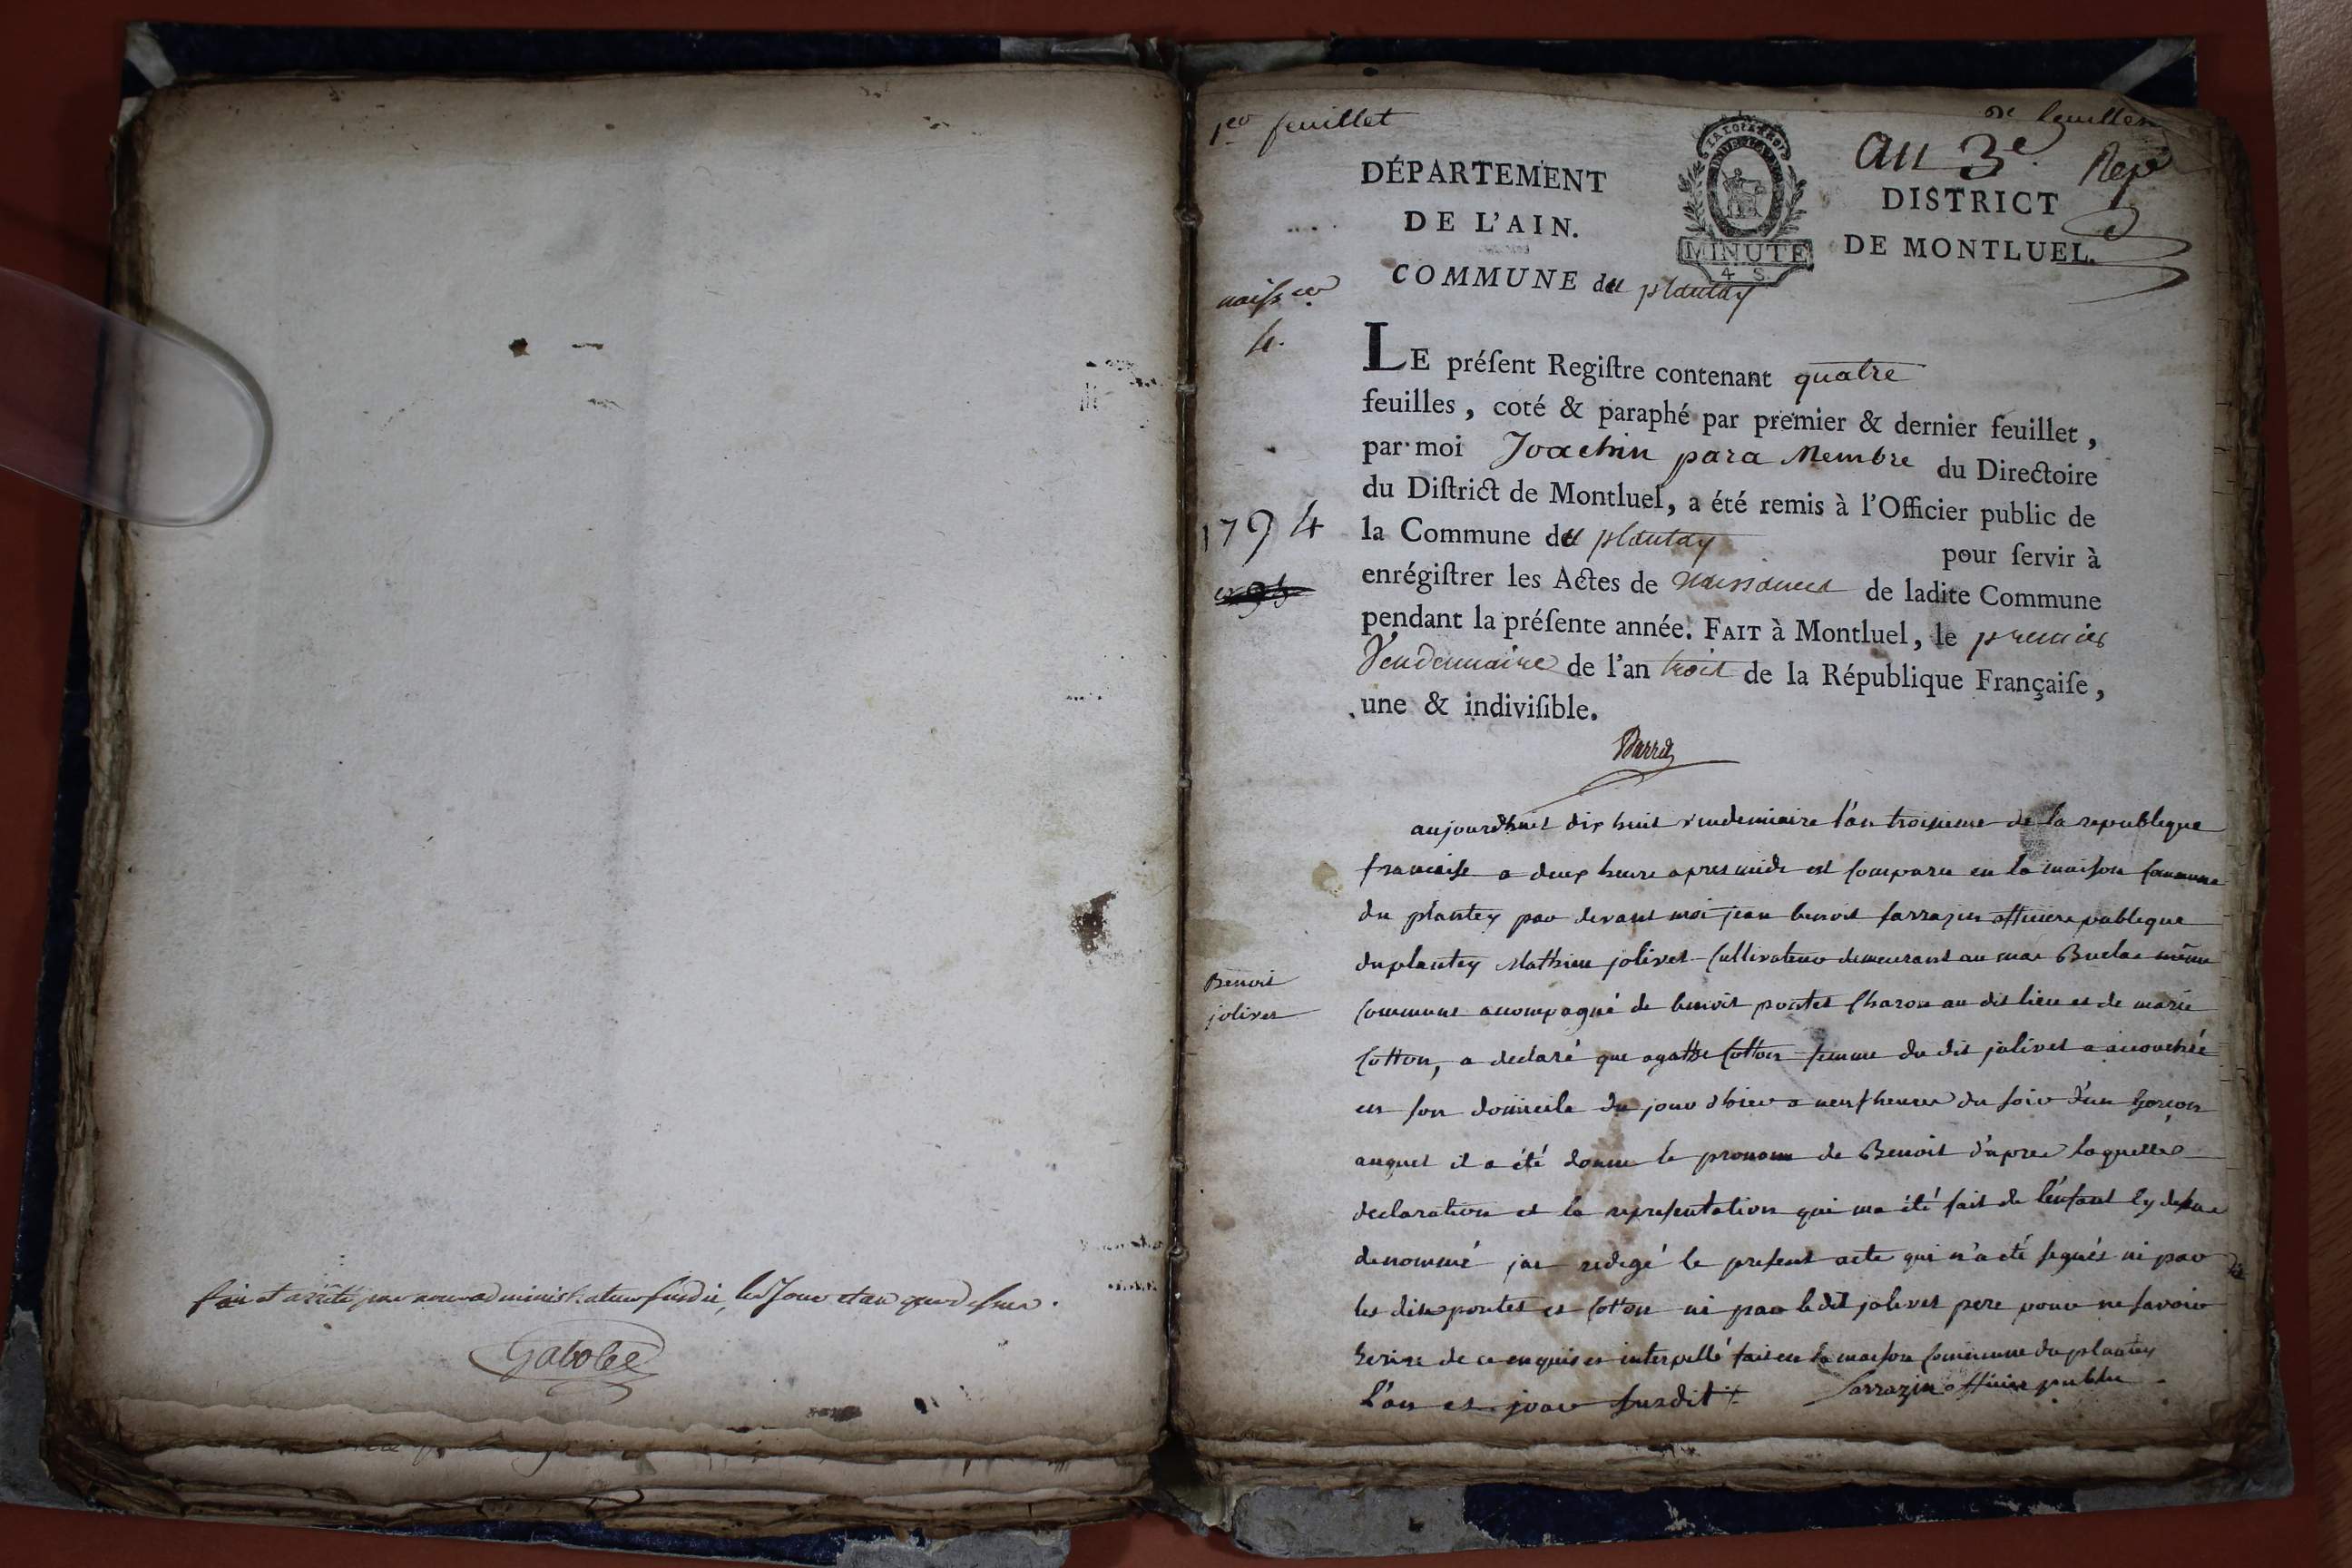 fait et arrêté par nous administrateur susdit, les Jour et an que dessus.
Gabolet
1er feuillet
de feuillets
an 3e
Rep
DÉPARTEMENT
DE L'AIN.
COMMUNE du plantay
LA LOI LE ROI
MINUTE
4 S.
DISTRICT
DE MONTLUEL.
naissces
4.
1794
LE préſent Regiſtre contenant quatre
feuilles, coté & paraphé par premier & dernier feuillet,
par moi Joachin para Membre du Directoire
du Diſtrict de Montluel, a été remis à l'Officier public de
la Commune du plantay pour ſervir à
enrégiſtrer les Actes de naissances de ladite Commune
pendant la préſente année. FAIT à Montluel, le premier
Vendemiaire de l'an trois de la République Françaiſe,
une & indiviſible.
Benoit
jolivet
aujourdhuit dix huit vendemiaire l'an troisieme de la republique
francaise a deux heure apres midi est comparu en la maison commune
du plantey par devant moi jean benoit sarrazin officiere publique
du plantey Mathieu jolivet cultivateur demeurant au mas Buclas même
commune acompagné de benoit pontet charon au dit lieu et de marie
cotton, a declaré que agathe cotton femme du dit jolivet a accouchée
en son domicile du jour d'hier a neuf heures du soir d'un garcon
auquel il a été donne le pronom de Benoit d'apres laquelle
declaration et la representation qui ma été fait de l'enfant cy dessus
denommé jai redigé le present acte qui n'a été signés ni par
les dits pontet et cotton ni par le dit jolivet pere pour ne savoir
Ecrire de ce enquis et interpellé fait en la maison commune du plantey
l'an et jour susdit
sarrazin officier public